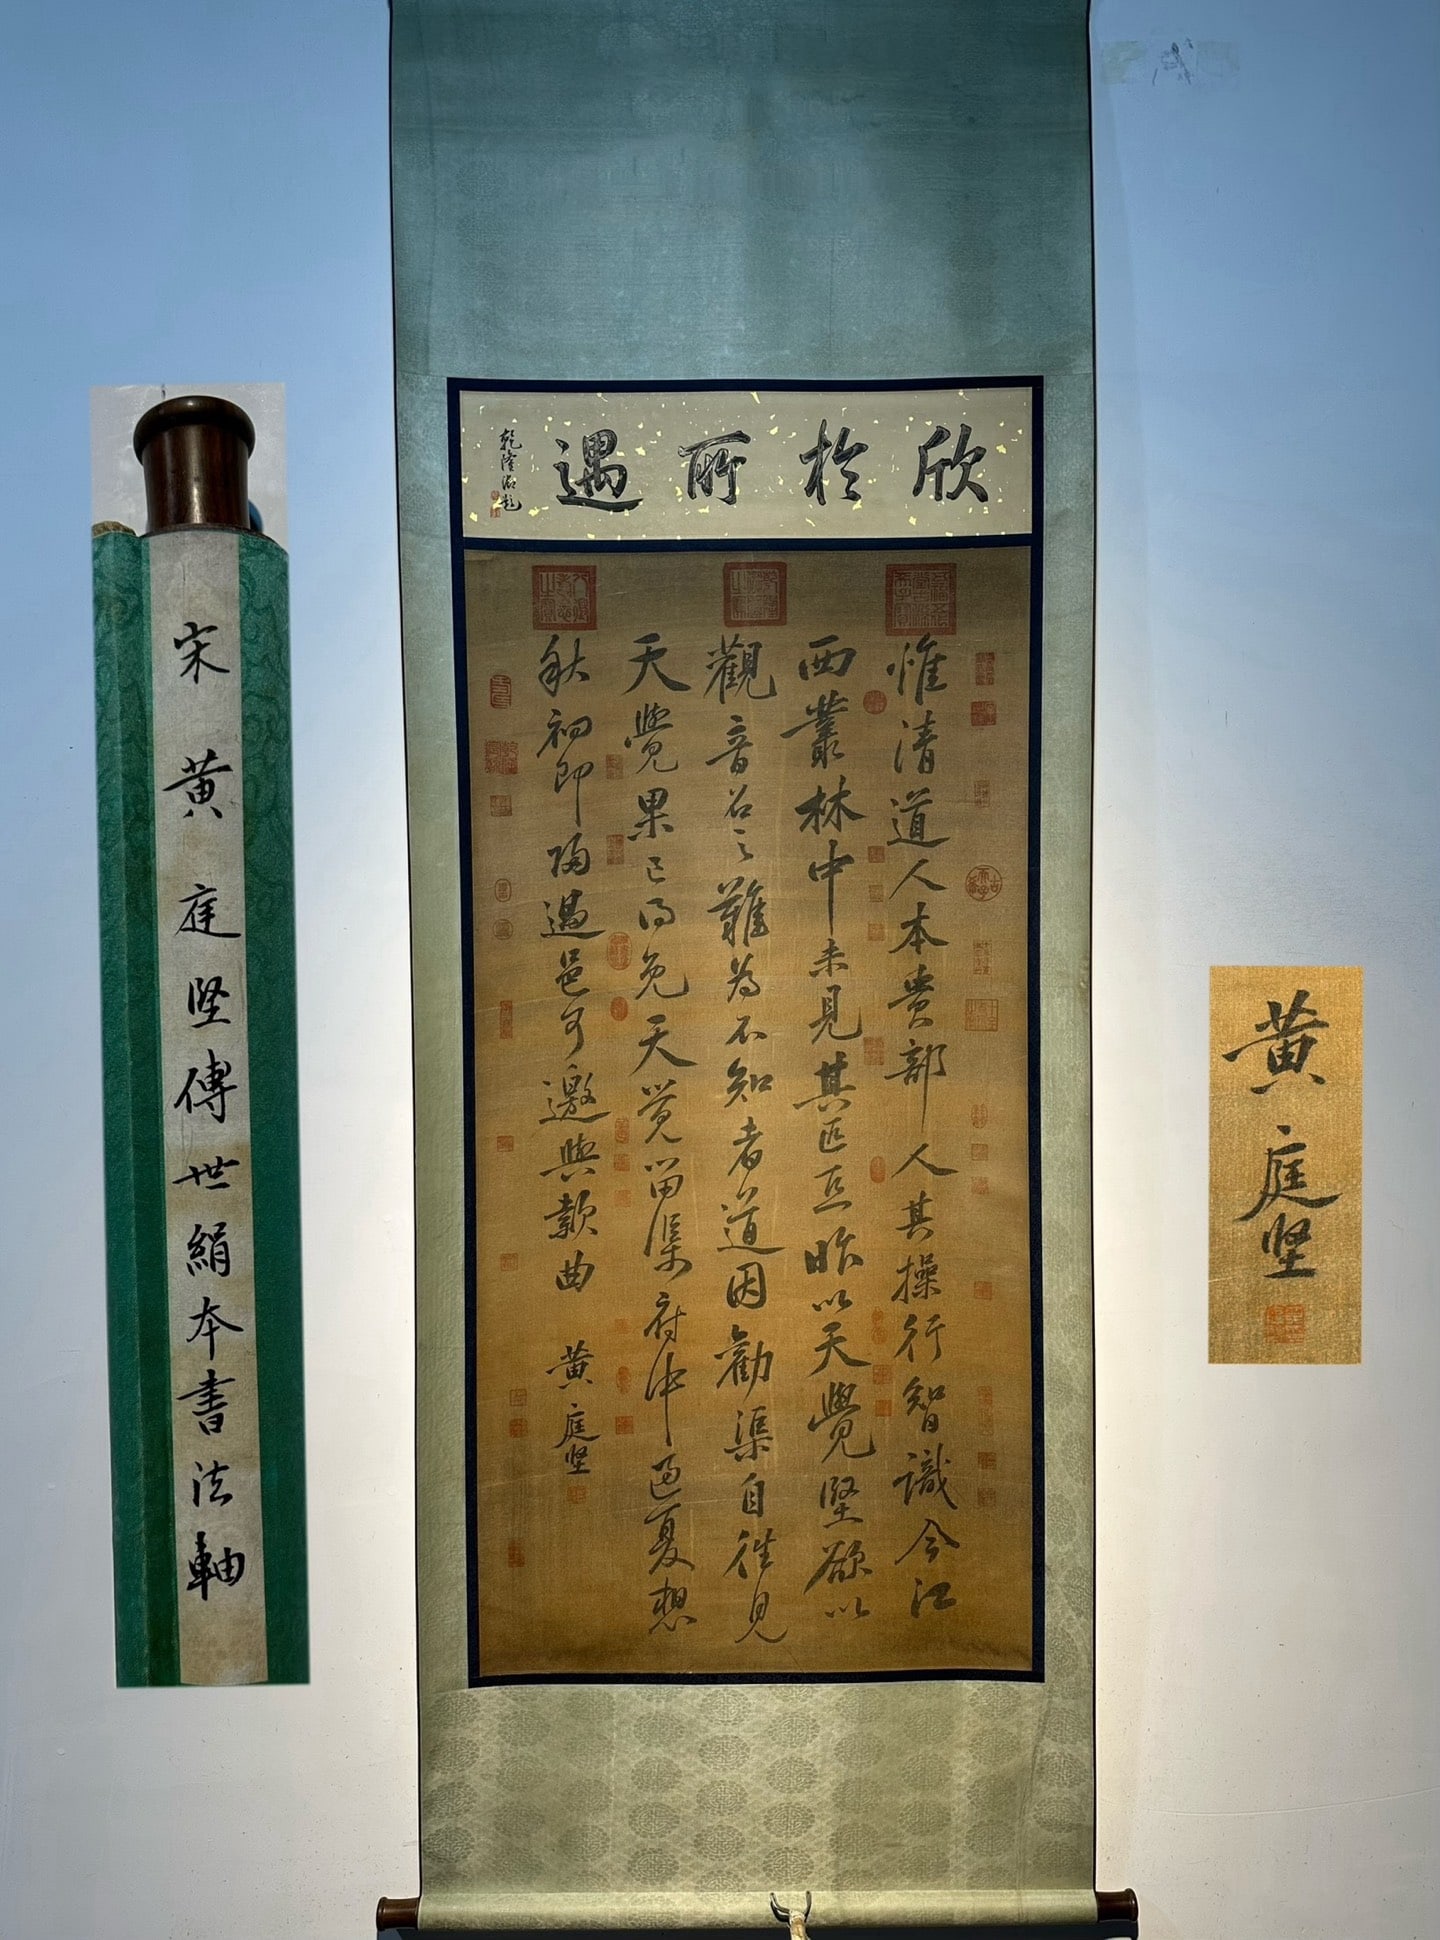 欣於所遇
乾隆御題
惟清道人本貴部人其操行智識今江
西叢林中未見其匹亞昨以天覺堅欲以
觀音召之難為不知者道因勸渠自往見
天覺果已得免天覺留渠府中過夏想
秋初即歸過邑可邀與款曲
黄庭坚
宋黄庭坚傳世絹本書法軸
黄庭坚